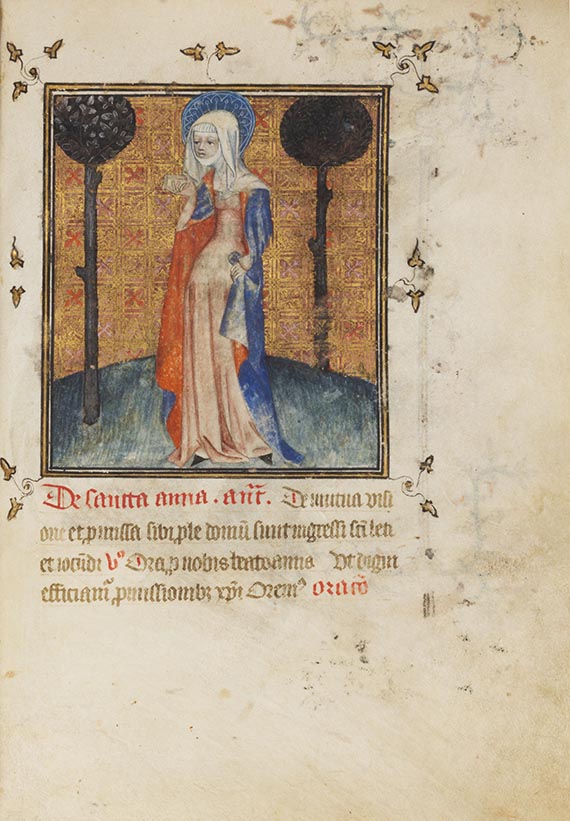 De sancta anna . añt. De mutua visi
one et pmissa sibi ple domū sunt ingressi sci leti
et iocūdi v᷎ Ora p nobis beata anna Vt digni
efficiam᷑ pmissionibꝫ xp̄i Orem᷒ oracō